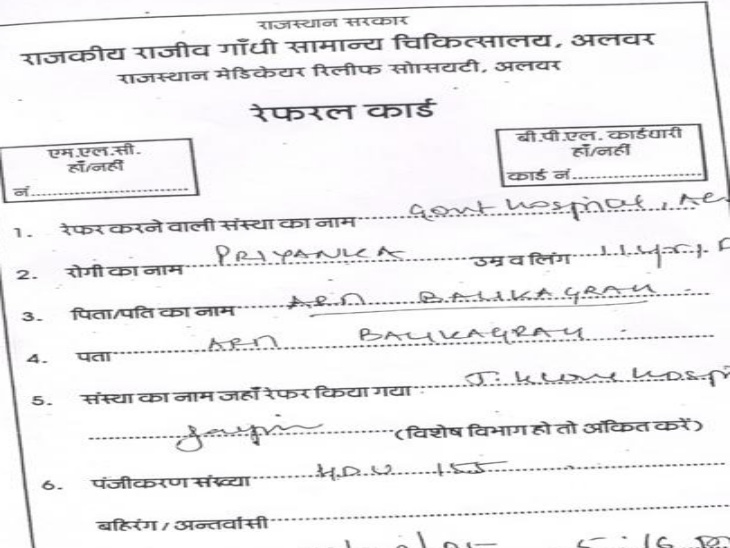 राजस्थान सरकार
राजकीय राजीव गाँधी सामान्य चिकित्सालय, अलवर
राजस्थान मेडिकेयर रिलीफ सोसायटी, अलवर
रेफरल कार्ड
एम.एल.सी.
हाँ/नहीं
नं.
बी.पी.एल. कार्डधारी
हाँ/नहीं
कार्ड नं.
1. रेफर करने वाली संस्था का नाम Govt Hospital,
2. रोगी का नाम PRIYANKA उम्र व लिंग
3. पिता/पति का नाम BALIKAGRAH
4. पता BALIKAGRAH
5. संस्था का नाम जहाँ रेफर किया गया
(विशेष विभाग हो तो अंकित करें)
6. पंजीकरण संख्या
बहिरंग / अन्तर्वासी